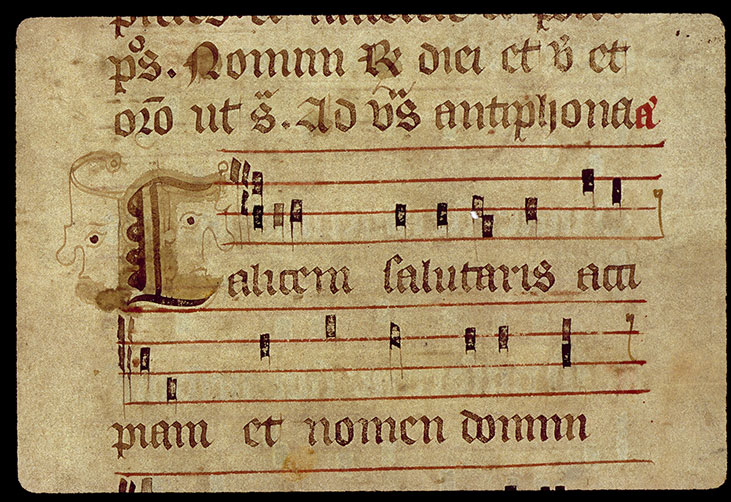 pōs. Nonum ℟ diei et v̄ et
orō ut s̄. Ad vs̄ antiphona a
Calicem salutaris acci
piam et nomen domini